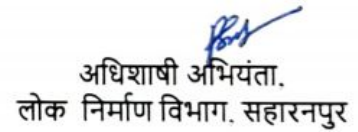 अधिशाषी अभियंता.
लोक निर्माण विभाग. सहारनपुर